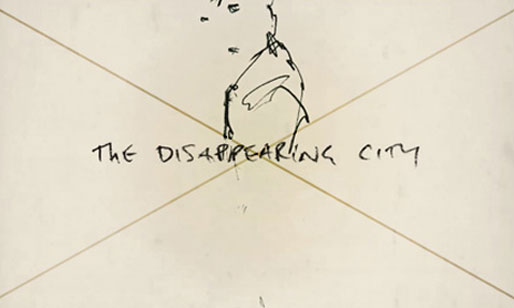 THE DISAPPEARING CITY